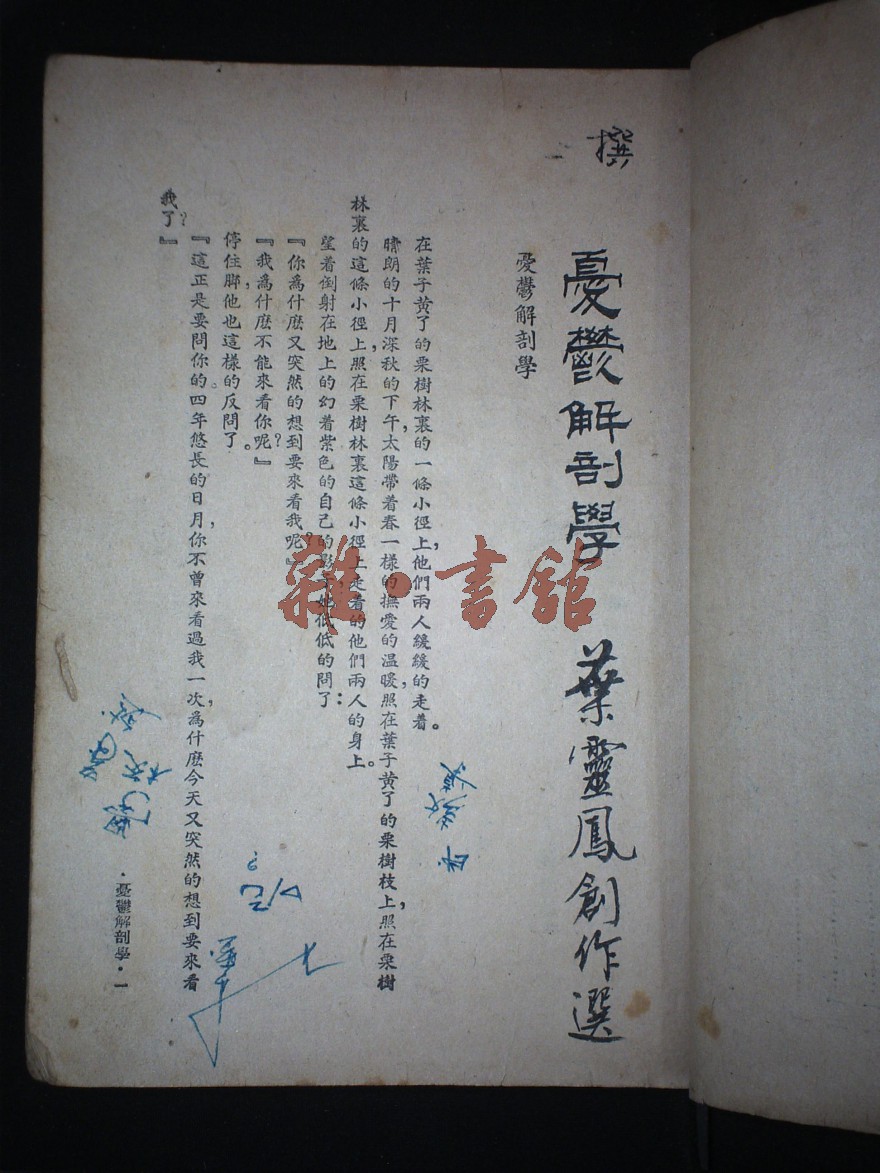 撰
憂鬱解剖學 葉靈鳳創作選
憂鬱解剖學
在葉子黃了的栗樹林裏的一條小徑上，他們兩人緩緩的走着。
晴朗的十月深秋的下午，太陽帶着春一樣的撫愛的温暖，照在葉子黃了的栗樹枝上，照在栗樹
林裏的這條小徑上，照在栗樹林裏這條小徑上走着的他們兩人的身上。
望着倒射在地上的幻着紫色的自己的影子，她低低的問了：
『你爲什麽又突然的想到要來看我呢？』
『我爲什麽不能來看你呢？』
停住脚，他也這樣的反問了。
『這正是要問你的。四年悠長的日月，你不曾來看過我一次，爲什麽今天又突然的想到要來看
我了？』
呢？
·憂鬱解剖學·一
雜·書館